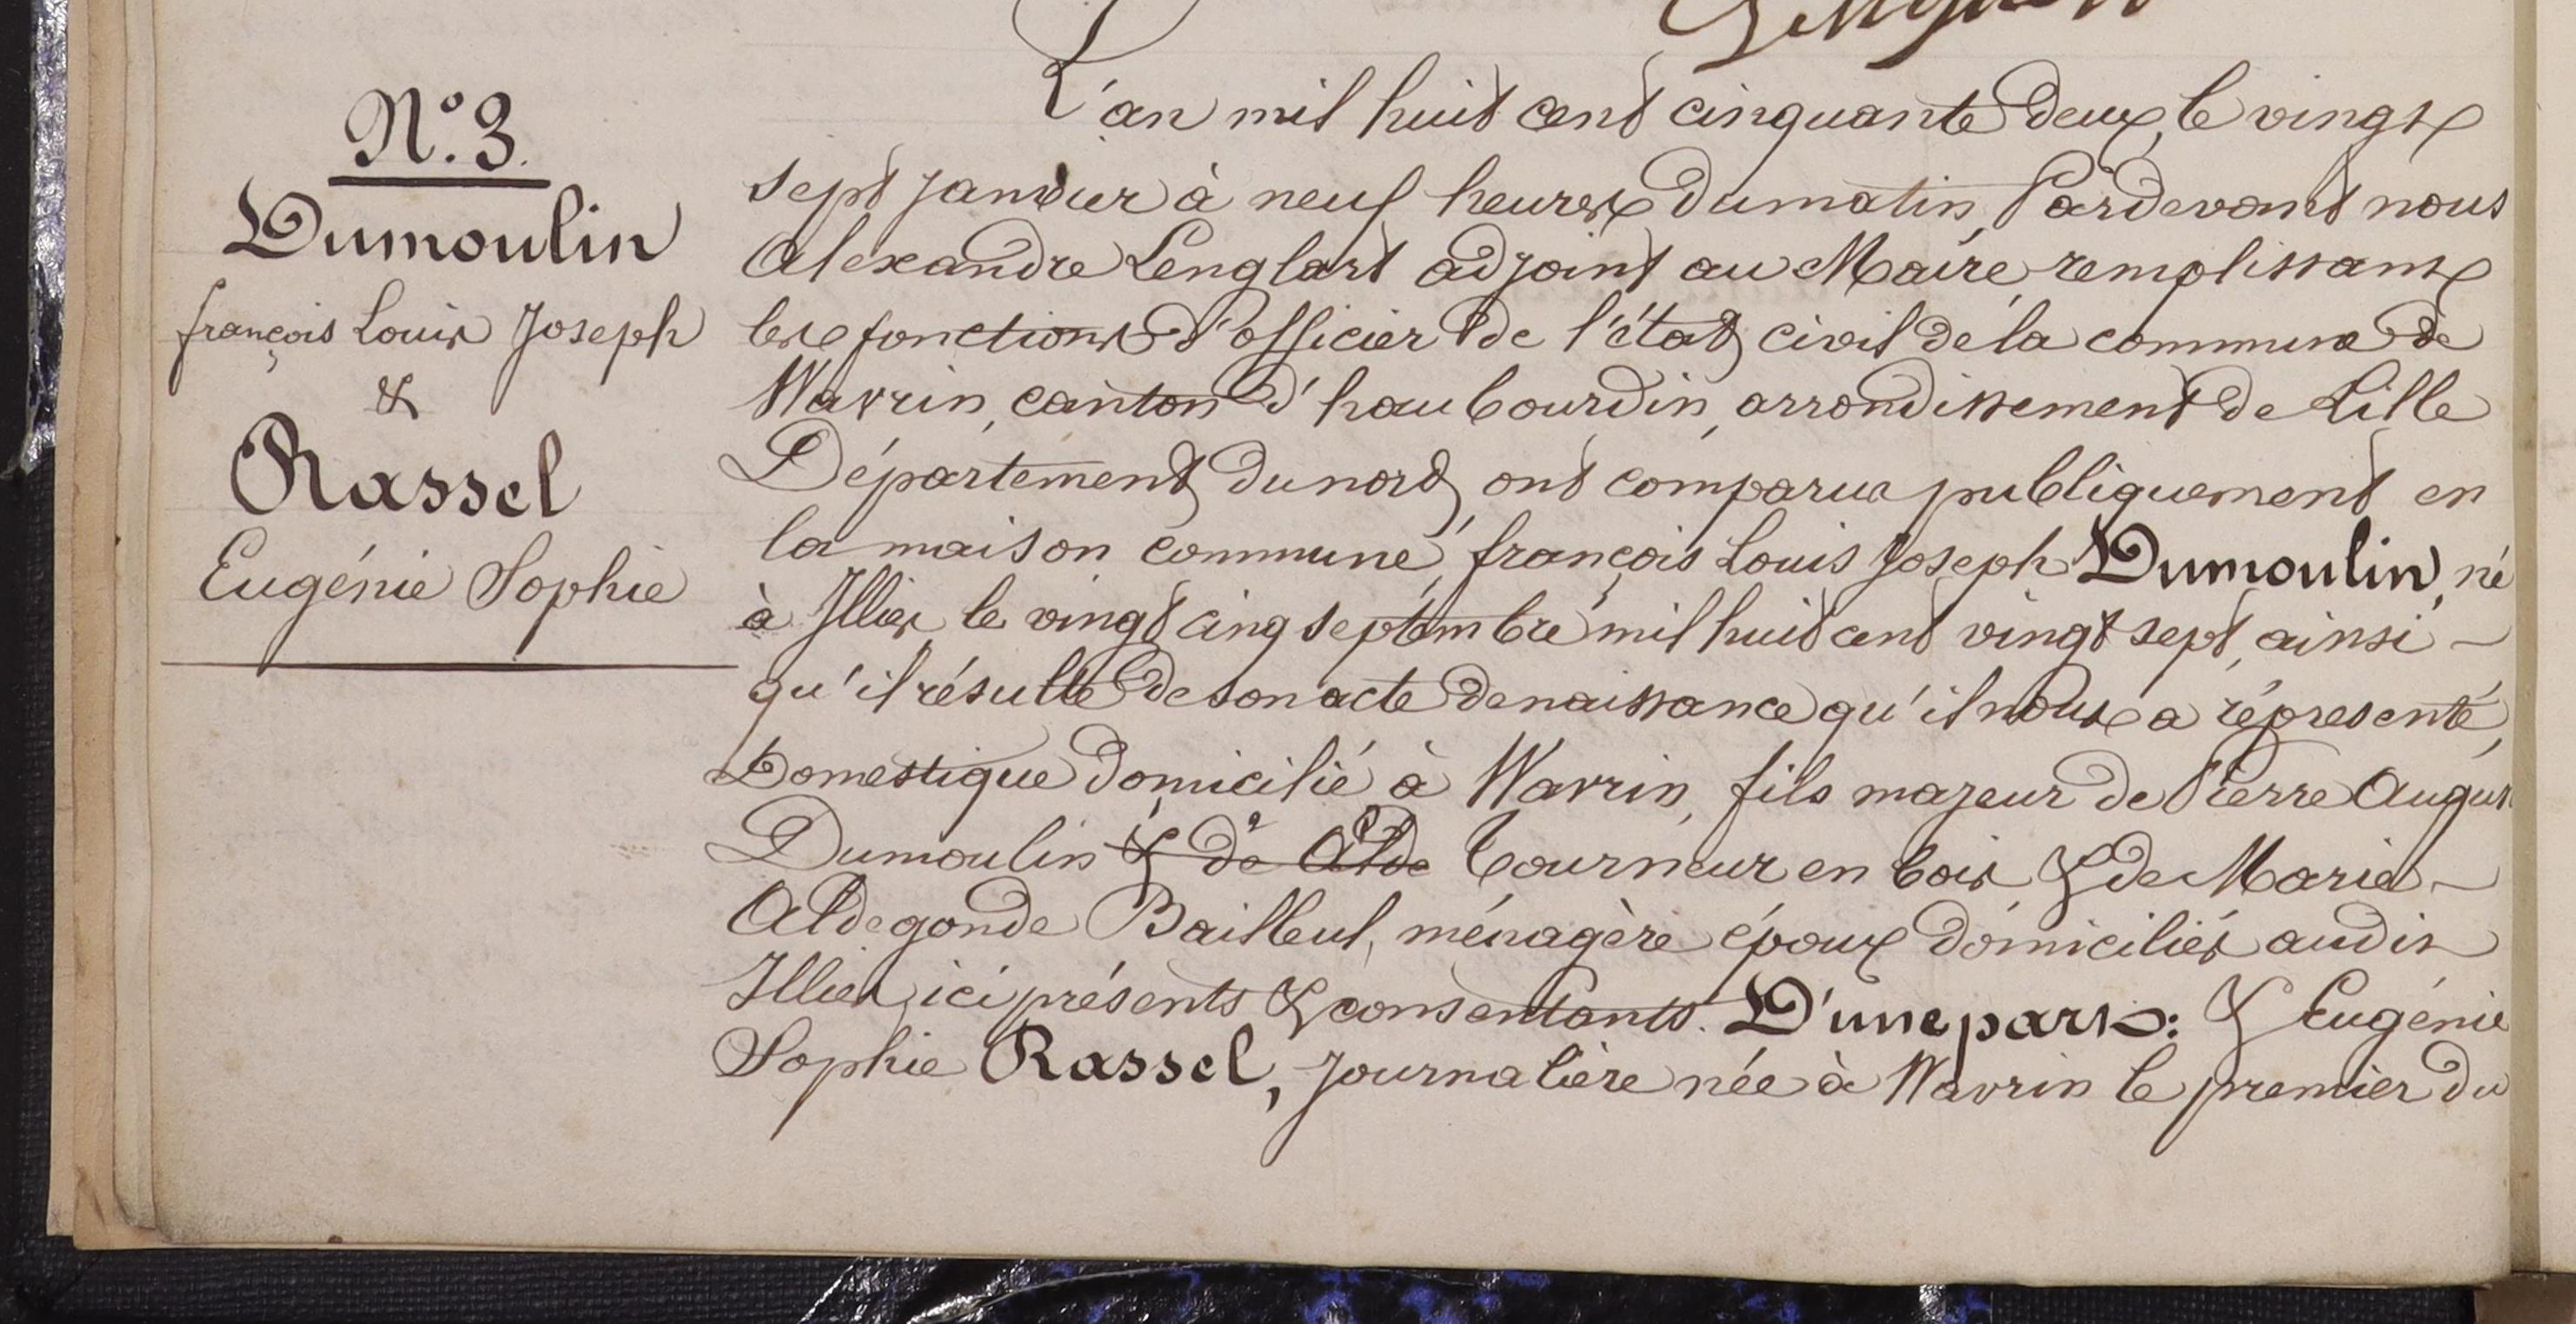 N.° 3.
Dumoulin
françois Louis Joseph
&
Rassel
Eugénie Sophie
L'an mil huit cent cinquante deux, le vingt
sept janvier à neuf heures du matin, Pardevant nous
Alexandre Lenglart adjoint au Maire, remplissant
les fonctions d'officier de l'état civil de la commune de
Wavrin, canton d'haubourdin, arrondissement de Lille
Département du nord, ont comparu publiquement en
la maison commune, françois Louis Joseph Dumoulin, né
à Illies le vingt cinq septembre mil huit cent vingt sept, ainsi -
qu'il résulte de son acte de naissance qu'il nous a répresenté,
Domestique domicilié à Wavrin, fils majeur de Pierre Augus
Dumoulin & de Alde tourneur en bois & de Marie -
Aldegonde Bailleul, ménagère époux domiciliés audit
Illies, ici présents & consentants. D'une part: & Eugénie
Sophie Rassel, journalière née à Wavrin le premier du